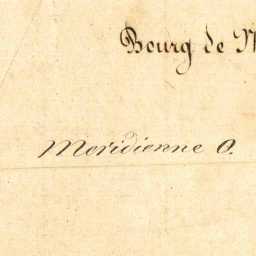 Bourg de
Meridienne O.